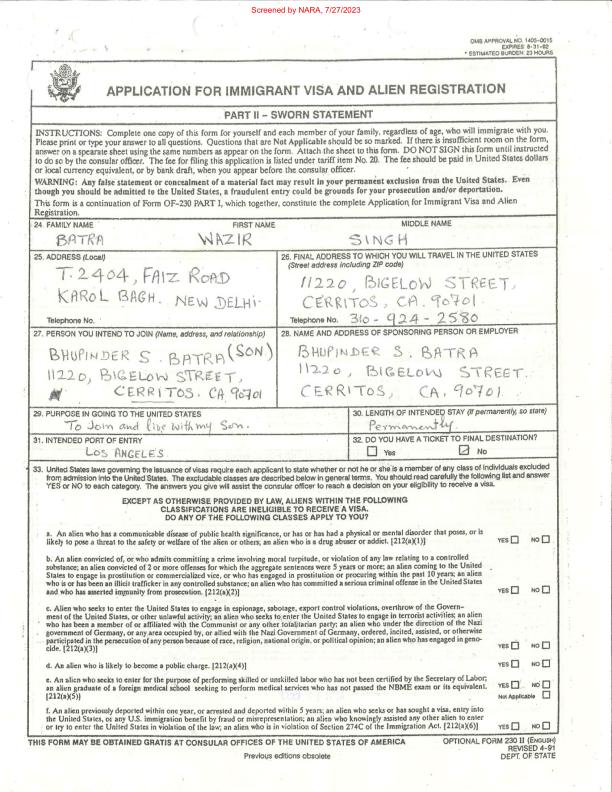 Screened by NARA, 7/27/2023
OMB APPROVAL NO. 1405-0015
EXPIRES: 8-31-92
* ESTIMATED BURDEN: 23 HOURS
APPLICATION FOR IMMIGRANT VISA AND ALIEN REGISTRATION
PART II – SWORN STATEMENT
INSTRUCTIONS: Complete one copy of this form for yourself and each member of your family, regardless of age, who will immigrate with you.
Please print or type your answer to all questions. Questions that are Not Applicable should be so marked. If there is insufficient room on the form,
answer on a spearate sheet using the same numbers as appear on the form. Attach the sheet to this form. DO NOT SIGN this form until instructed
to do so by the consular officer. The fee for filing this application is listed under tariff item No. 20. The fee should be paid in United States dollars
or local currency equivalent, or by bank draft, when you appear before the consular officer.
WARNING: Any false statement or concealment of a material fact may result in your permanent exclusion from the United States. Even
though you should be admitted to the United States, a fraudulent entry could be grounds for your prosecution and/or deportation.
This form is a continuation of Form OF-230 PART I, which together, constitute the complete Application for Immigrant Visa and Alien
Registration.
24. FAMILY NAME FIRST NAME MIDDLE NAME
BATRA WAZIR SINGH
25. ADDRESS (Local)
T. 2404, FAIZ ROAD
KAROL BAGH. NEW DELHI.
Telephone No.
26. FINAL ADDRESS TO WHICH YOU WILL TRAVEL IN THE UNITED STATES
(Street address including ZIP code)
11220, BIGELOW STREET,
CERRITOS, CA. 90701.
Telephone No. 310-924-2580
27. PERSON YOU INTEND TO JOIN (Name, address, and relationship)
BHUPINDER S. BATRA (SON)
11220, BIGELOW STREET,
CERRITOS. CA. 90701
28. NAME AND ADDRESS OF SPONSORING PERSON OR EMPLOYER
BHUPINDER S. BATRA
11220, BIGELOW STREET.
CERRITOS, CA. 90701.
29. PURPOSE IN GOING TO THE UNITED STATES
To Join and live with my Son.
30. LENGTH OF INTENDED STAY (If permanently, so state)
Permanently.
31. INTENDED PORT OF ENTRY
LOS ANGELES.
32. DO YOU HAVE A TICKET TO FINAL DESTINATION?
Yes No
33. United States laws governing the issuance of visas require each applicant to state whether or not he or she is a member of any class of individuals excluded
from admission into the United States. The excludable classes are described below in general terms. You should read carefully the following list and answer
YES or NO to each category. The answers you give will assist the consular officer to reach a decision on your eligibility to receive a visa.
EXCEPT AS OTHERWISE PROVIDED BY LAW, ALIENS WITHIN THE FOLLOWING
CLASSIFICATIONS ARE INELIGIBLE TO RECEIVE A VISA.
DO ANY OF THE FOLLOWING CLASSES APPLY TO YOU?
a. An alien who has a communicable disease of public health significance, or has or had a physical or mental disorder that poses, or is
likely to pose a threat to the safety or welfare of the alien or others; an alien who is a drug abuser or addict. [212(a)(1)] YES NO
b. An alien convicted of, or who admits committing a crime involving moral turpitude, or violation of any law relating to a controlled
substance; an alien convicted of 2 or more offenses for which the aggregate sentences were 5 years or more; an alien coming to the United
States to engage in prostitution or commercialized vice, or who has engaged in prostitution or procuring within the past 10 years; an alien
who is or has been an illicit trafficker in any controlled substance; an alien who has committed a serious criminal offense in the United States
and who has asserted impunity from prosecution. [212(a)(2)] YES NO
c. Alien who seeks to enter the United States to engage in espionage, sabotage, export control violations, overthrow of the Govern-
ment of the United States, or other unlawful activity; an alien who seeks to enter the United States to engage in terrorist activities; an alien
who has been a member of or affiliated with the Communist or any other totalitarian party; an alien who under the direction of the Nazi
government of Germany, or any area occupied by, or allied with the Nazi Government of Germany, ordered, incited, assisted, or otherwise
participated in the persecution of any person because of race, religion, national origin, or political opinion; an alien who has engaged in geno-
cide. [212(a)(3)] YES NO
d. An alien who is likely to become a public charge. [212(a)(4)] YES NO
e. An alien who seeks to enter for the purpose of performing skilled or unskilled labor who has not been certified by the Secretary of Labor;
an alien graduate of a foreign medical school seeking to perform medical services who has not passed the NBME exam or its equivalent. YES NO
[212(a)(5)] Not Applicable
f. An alien previously deported within one year, or arrested and deported within 5 years; an alien who seeks or has sought a visa, entry into
the United States, or any U.S. immigration benefit by fraud or misrepresentation; an alien who knowingly assisted any other alien to enter
or try to enter the United States in violation of the law; an alien who is in violation of Section 274C of the Immigration Act. [212(a)(6)] YES NO
THIS FORM MAY BE OBTAINED GRATIS AT CONSULAR OFFICES OF THE UNITED STATES OF AMERICA
OPTIONAL FORM 230 II (ENGLISH)
REVISED 4-91
DEPT. OF STATE
Previous editions obsolete